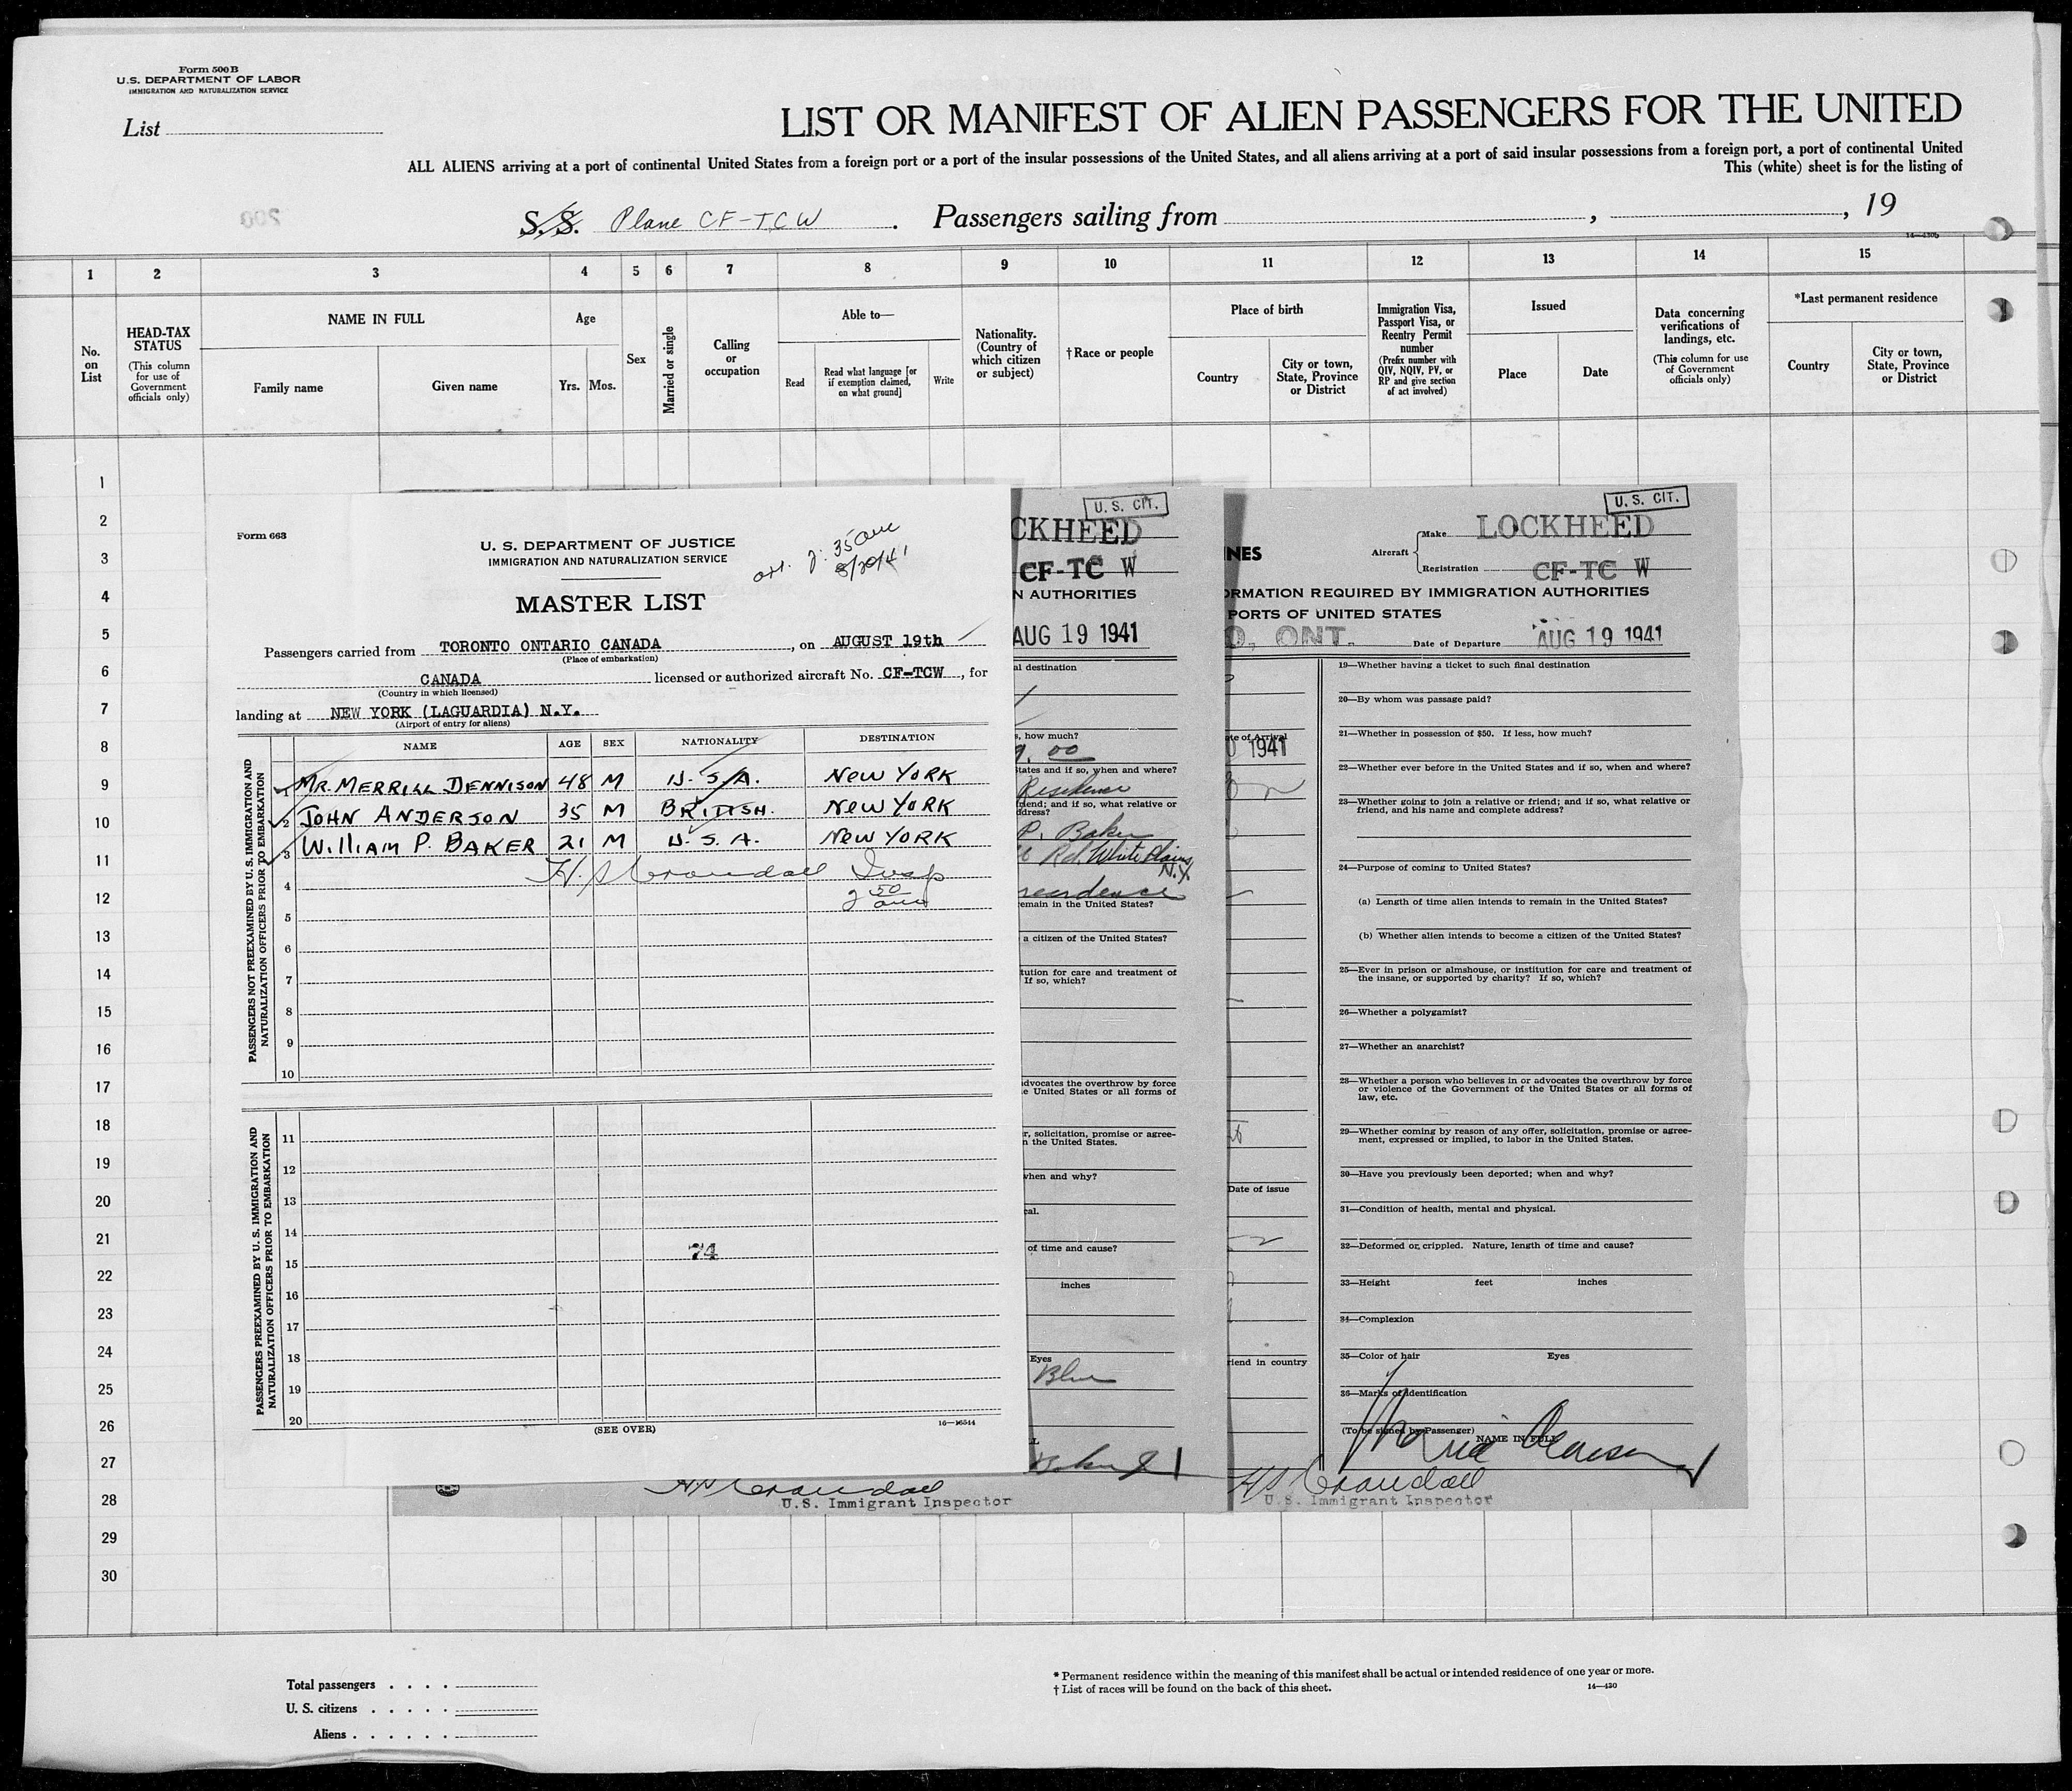 Form 500 B
U.S. DEPARTMENT OF LABOR
IMMIGRATION AND NATURALIZATION SERVICE
List
LIST OR MANIFEST OF ALIEN PASSENGERS FOR THE UNITED
ALL ALIENS arriving at a port of continental United States from a foreign port or a port of the insular possessions of the United States, and all aliens arriving at a port of said insular possessions from a foreign port, a port of continental United
This (white) sheet is for the listing of
200
S.S. Plane CF-TCW . Passengers sailing from , , 19
14—4305
1 2 3 4 5 6 7 8 9 10 11 12 13 14 15
No. on List
HEAD-TAX STATUS
(This column for use of Government officials only)
NAME IN FULL
Family name Given name
Age
Yrs. Mos.
Sex
Married or single
Calling or occupation
Able to—
Read
Read what language [or if exemption claimed, on what ground]
Write
Nationality. (Country of which citizen or subject)
†Race or people
Place of birth
Country
City or town, State, Province or District
Immigration Visa, Passport Visa, or Reentry Permit number
(Prefix number with QIV, NQIV, PV, or RP and give section of act involved)
Issued
Place Date
Data concerning verifications of landings, etc.
(This column for use of Government officials only)
*Last permanent residence
Country
City or town, State, Province or District
1
2
3
4
5
6
7
8
9
10
11
12
13
14
15
16
17
18
19
20
21
22
23
24
25
26
27
28
29
30
Form 663
U. S. DEPARTMENT OF JUSTICE
IMMIGRATION AND NATURALIZATION SERVICE
8/20/41
MASTER LIST
Passengers carried from TORONTO ONTARIO CANADA , on AUGUST 19th
(Place of embarkation)
CANADA licensed or authorized aircraft No. CF-TCW , for
(Country in which licensed)
landing at NEW YORK (LAGUARDIA) N.Y.
(Airport of entry for aliens)
PASSENGERS NOT PREEXAMINED BY U. S. IMMIGRATION AND
NATURALIZATION OFFICERS PRIOR TO EMBARKATION
NAME AGE SEX NATIONALITY DESTINATION
MR. MERRILL DENNISON 48 M U.S.A. NEW YORK
2 JOHN ANDERSON 35 M BRITISH. NEW YORK
3 WILLIAM P. BAKER 21 M U.S.A. NEW YORK
4 H. S Crandall Insp
5
6
7
8
9
10
PASSENGERS PREEXAMINED BY U. S. IMMIGRATION AND
NATURALIZATION OFFICERS PRIOR TO EMBARKATION
11
12
13
14
74
15
16
17
18
19
20
(SEE OVER)
16—16544
U. S. CIT.
CKHEED
CF-TC W
N AUTHORITIES
AUG 19 1941
al destination
s, how much?
9.00
tates and if so, when and where?
Residence
friend; and if so, what relative or
ddress?
P. Baker
Rd. White Plains
N.Y.
remain in the United States?
a citizen of the United States?
tution for care and treatment of
If so, which?
dvocates the overthrow by force
e United States or all forms of
r, solicitation, promise or agree-
n the United States.
when and why?
cal.
of time and cause?
inches
Eyes
Blue
H S Crandall
U.S. Immigrant Inspector
U. S. CIT.
NES
Aircraft
Make LOCKHEED
Registration CF-TC W
ORMATION REQUIRED BY IMMIGRATION AUTHORITIES
PORTS OF UNITED STATES
O, ONT. Date of Departure AUG 19 1941
te of Arrival
1941
Date of issue
riend in country
19—Whether having a ticket to such final destination
20—By whom was passage paid?
21—Whether in possession of $50. If less, how much?
22—Whether ever before in the United States and if so, when and where?
23—Whether going to join a relative or friend; and if so, what relative or
friend, and his name and complete address?
24—Purpose of coming to United States?
(a) Length of time alien intends to remain in the United States?
(b) Whether alien intends to become a citizen of the United States?
25—Ever in prison or almshouse, or institution for care and treatment of
the insane, or supported by charity? If so, which?
26—Whether a polygamist?
27—Whether an anarchist?
28—Whether a person who believes in or advocates the overthrow by force
or violence of the Government of the United States or all forms of
law, etc.
29—Whether coming by reason of any offer, solicitation, promise or agree-
ment, expressed or implied, to labor in the United States.
30—Have you previously been deported; when and why?
31—Condition of health, mental and physical.
32—Deformed or crippled. Nature, length of time and cause?
33—Height feet inches
34—Complexion
35—Color of hair Eyes
36—Marks of identification
(To be signed by Passenger)
NAME IN FULL
H S Crandall
U.S. Immigrant Inspector
Total passengers
U. S. citizens
Aliens
* Permanent residence within the meaning of this manifest shall be actual or intended residence of one year or more.
† List of races will be found on the back of this sheet.
14—430